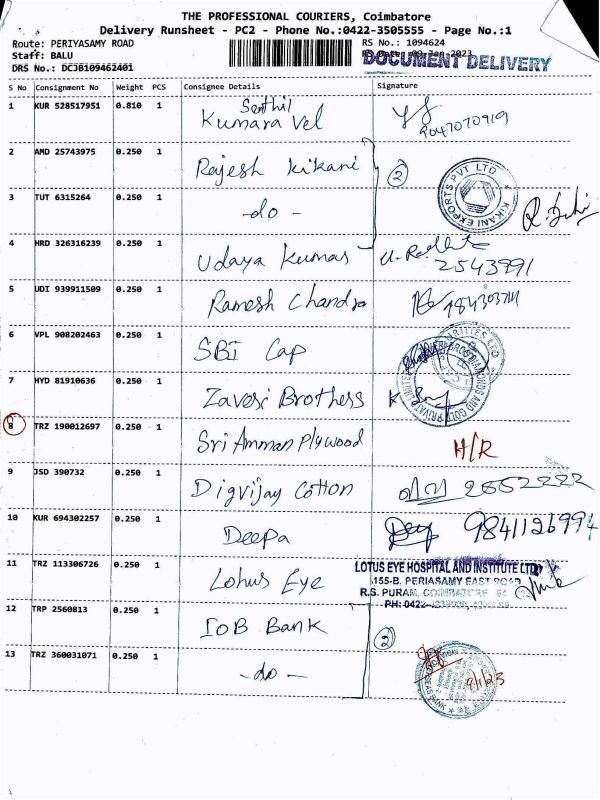 THE PROFESSIONAL COURIERS, Coimbatore
Delivery Runsheet - PC2 - Phone No.:0422-3505555 - Page No.:1
Route: PERIYASAMY ROAD RS No.: 1094624
Staff: BALU 09-Jan-2023
DOCUMENT DELIVERY
DRS No.: DCJB109462401
S No Consignment No Weight PCS Consignee Details Signature
1 KUR 528517951 0.810 1 Senthil Kumara Vel
9047070919
2 AMD 25743975 0.250 1 Rajesh Kikani 2
KIKANI EXPORTS PVT LTD
3 TUT 6315264 0.250 1 -do-
4 HRD 326316239 0.250 1 Udaya Kumar
2543991
5 UDI 939911509 0.250 1 Ramesh Chandra
6 VPL 908202463 0.250 1 SBI Cap
7 HYD 81910636 0.250 1 Zaveri Brothers
8 TRZ 190012697 0.250 1 Sri Amman Plywood H/R
9 JSD 390732 0.250 1 Digvijay Cotton
10 KUR 694302257 0.250 1 Deepa 9841126994
11 TRZ 113306726 0.250 1 Lotus Eye
LOTUS EYE HOSPITAL AND INSTITUTE LTD
155-B. PERIASAMY EAST ROAD
R.S. PURAM, COIMBATORE
PH: 0422-
12 TRP 2560813 0.250 1 IOB Bank 2
13 TRZ 360031071 0.250 1 -do-
9/1/23